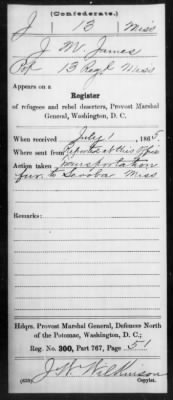 (Confederate.)
J 13 Miss
J. W. James
Pvt 13 Regt Miss
Appears on a
Register
of refugees and rebel deserters, Provost Marshal
General, Washington, D. C.
When received July 1, 1865
Where sent from Reported at this Office
Action taken Transportation
fur. to Scooba Miss
Remarks:
Hdqrs. Provost Marshal General, Defences North
of the Potomac, Washington, D. C.;
Reg. No. 300, Part 767, Page 51
J. W. Wilkinson
(639) Copyist.